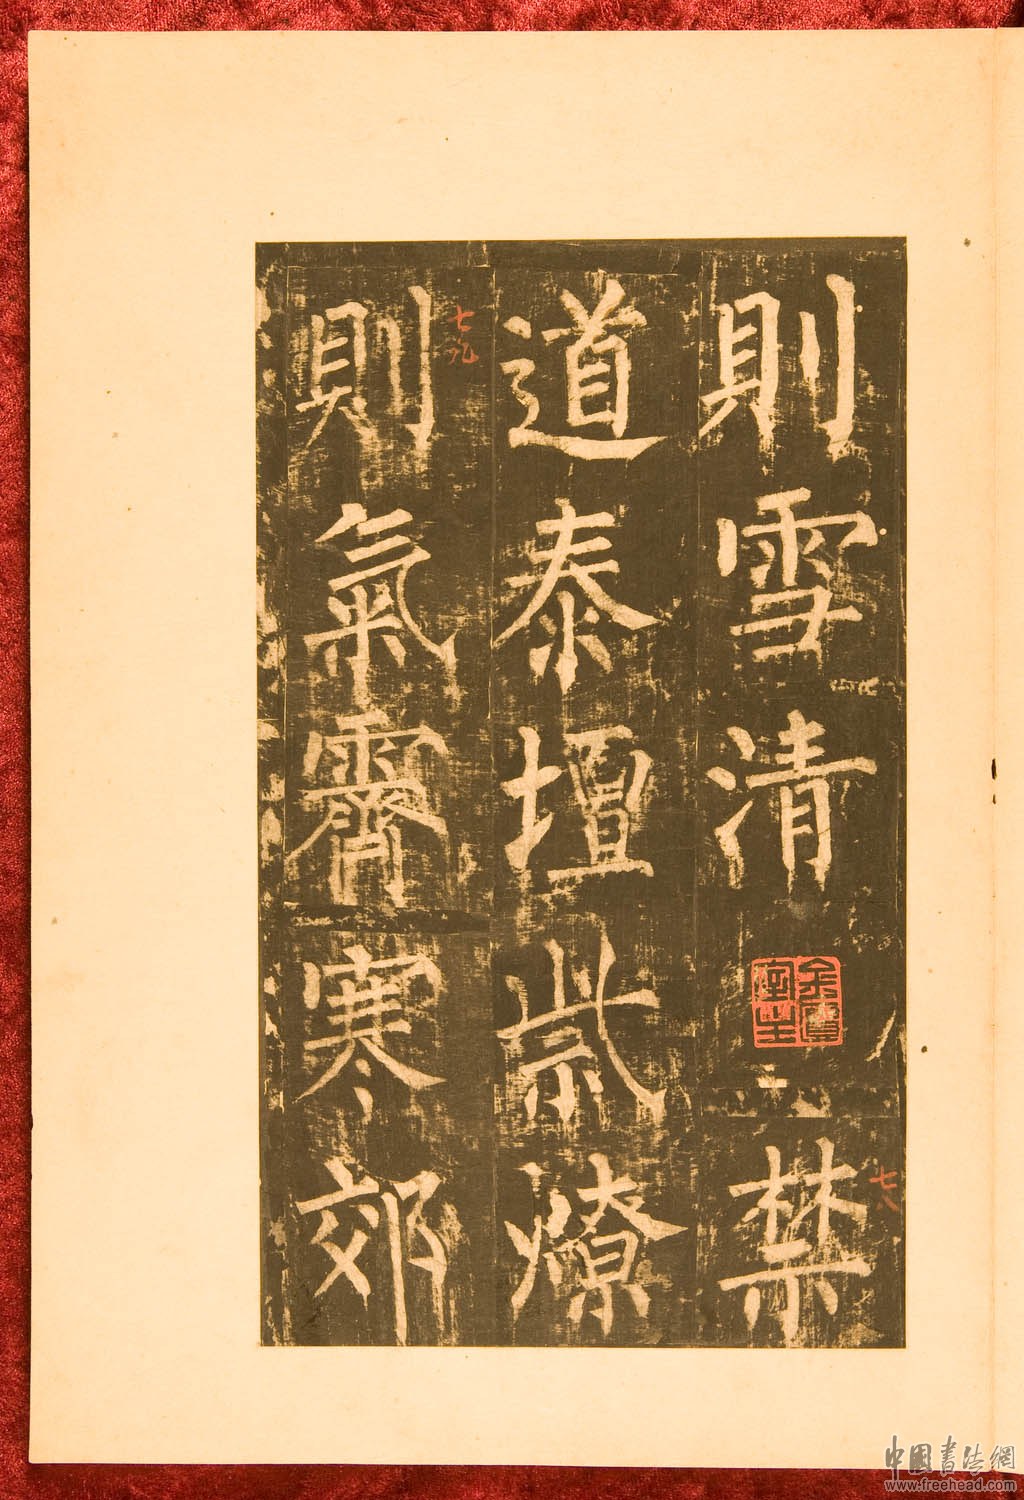 則雪清禁
道泰壇祡燎
則氣霽寒郊
七八
七九
中國書法網
www.freehead.com